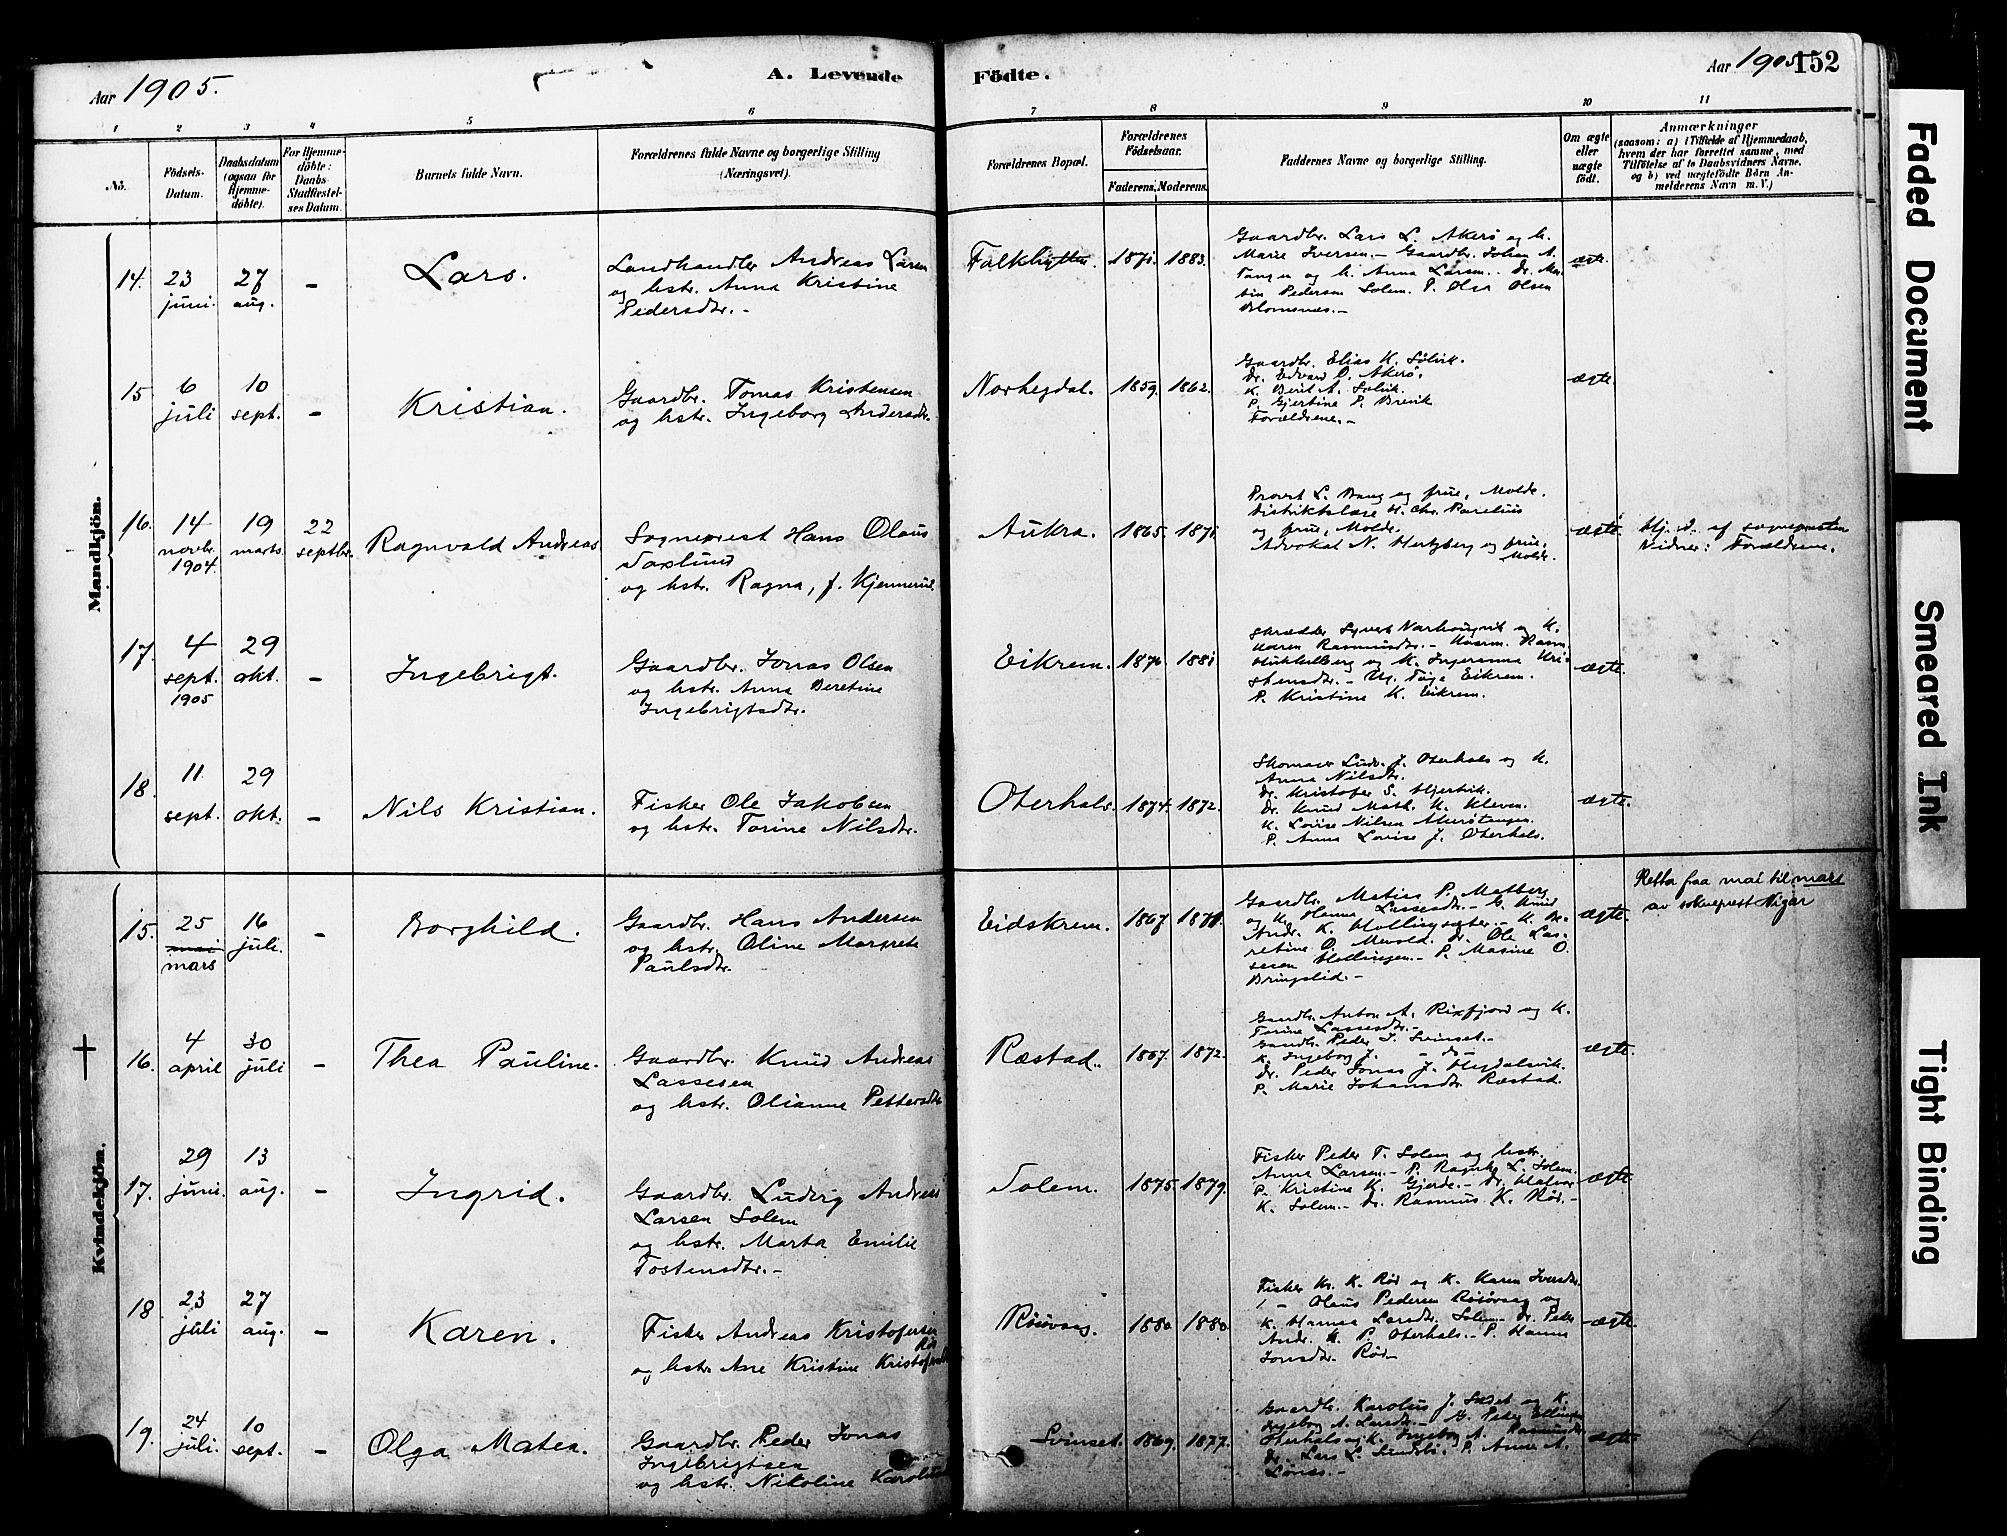 Aar 1905.
A. Levende
Födte.
Aar 1905.
152
1
2
3
4
5
6
7
8
9
10
11
No.
Födsels-
Datum.
Daabsdatum
(ogsaa for
Hjemme-
döbte).
For Hjemme-
döbte:
Daabs-
Stadfæstel-
ses Datum.
Barnets fulde Navn.
Forældrenes fulde Navne og borgerlige Stilling
(Næringsvei).
Forældrenes Bopæl.
Forældrenes
Födselsaar.
Faderens.
Moderens.
Faddernes Navne og borgerlige Stilling.
Om ægte
eller
uægte
födt.
Anmærkninger
(saasom: a) i Tilfælde af Hjemmedaab,
hvem der har forrettet samme, med
Tilföielse af to Daabsvidners Navne,
og b) ved uægtefödte Börn An-
melderens Navn m. V.)
Mandkjön.
14.
23
juni.
27
aug.
-
Lars.
Landhandler Andreas Larsen
og hstr. Anna Kristine
Pedersdtr. -
Falkhytten.
1871.
1883.
Gaardbr. Lars L. Akerö og h.
Marie Iversen. - Gaardbr. Johan A.
Tangen og h. Anna Larsen. - Dr. Mar-
tin Pedersen Solem. P. Olga Olsen
Blomsnes. -
ægte.
15
6
juli
10
sept.
-
Kristian.
Gaardbr. Tomas Kristensen
og hstr. Ingeborg Andersdtr.
Norhegdal.
1859.
1862.
Gaardbr. Elias K. Sölvik.
Dr. Edvard O. Akerö.
K. Berit A. Solvik.
P. Gjertine P. Brevik
Forældrene. -
ægte.
16.
14
novbr.
1904.
19
marts
22
septbr.
Ragnvald Andreas
Sogneprest Hans Olaus
Saxlund
og hstr. Ragna, f. Kjennerud.
Aukra.
1865.
1871.
Provst L. Bang og frue, Molde.
Distriktslæge H. Chr. Parelius
og frue, Molde.
Advokat N. Hertzberg og frue,
Molde.
ægte.
Hj. d. af sognepresten
Vidner: Forældrene.
17.
4
sept.
1905
29
okt.
-
Ingebrigt.
Gaardbr. Jonas Olsen
og hstr. Anna Beretine
Ingebrigtsdtr.
Eikrem.
1870.
1881.
Skrædder Syvert og K.
Karen Rasmusdtr. -
og K. Ingeranna Kri-
stensdtr. - Eikrem.
P. Kristine K. Eikrem.
ægte.
18.
11.
sept.
29
okt.
-
Nils Kristian.
Fisker Ole Jakobsen
og hstr. Torine Nilsdtr.
Oterhals.
1874.
1872.
Skomager Ludv. J. Oterhals og K.
Anna Nilsdtr.
Dr. Kristofer S. Hjertvik.
Dr. Knud Math. K. Kleven.
K. Lovise Nilsen
P. Anna Lovise J. Oterhals.
ægte.
Kvindekjön.
15.
25
mai
mars
16
juli.
-
Borghild.
Gaardbr. Hans Andersen
og hstr. Oline Margrete
Paulsdtr.
Eidskrem.
1867
1871.
Gaardbr. Matias P. Matberg
og K. Hanna Lassesdtr. - G. Knud
Andr. K. Hollingsæter. - K. Be-
retine O. Dr. Ole Las-
sesen Hollingen. - P. Masine O.
Bringslid. -
ægte.
Retta fraa mai til mars
av sokneprest Nigar
16.
4
april
30
juli
-
Thea Pauline.
Gaardbr. Knud Andreas
Lassesen
og hstr. Olianna Pettersdtr
Ræstad.
1867.
1872.
Gaardbr. Anton A. Rixfjord og K.
Torine Lassesdtr. -
Gaardbr. Peder I. Svinset. -
K. Ingeborg J. - do -
Dr. Peder Jonas J. Hegdalsvik.
P. Marie Johansdtr. Ræstad.
ægte.
17.
29
juni.
13
aug.
-
Ingrid.
Gaardbr. Ludvig Andreas
Larsen Solem
og hstr. Marta Emilie
Tostensdtr. -
Solem.
1875.
1879.
Fisker Peder T. Solem og hstr.
Anna Larsen. - P. L. Solem.
P. Kristine K. Gjerde. - Dr.
K. Solem. - Dr. Rasmus K. Röd. -
ægte.
18
23
juli
27
aug.
-
Karen.
Fisker Andreas Kristofersen
Röd
og hstr. Ane Kristine
Rösövaag.
1880.
1880.
Fisker Kr. K. Röd og K. Karen Iversdtr.
Olaus Pedersen Rösövaag og
K. Hanna Larsdtr. Solem. Dr. Peder
Andr. K. P. Oterhals. - P. Hanna
Jonsdtr. Röd -
ægte.
19.
24
juli.
10
sept.
-
Olga Matea.
Gaardbr. Peder Jonas
Ingebrigtsen
og hstr. Nikoline
Svinset.
1869.
1877.
Gaardbr. Karolus J. og K.
Ingeborg A. Larsdtr. - G. Peder
Oterhals og K. Ingeborg A. Rasmusdtr.
Dr. Lars L. P. Anne A.
Lönset. -
ægte.
Faded Document
Smeared Ink
Tight Binding